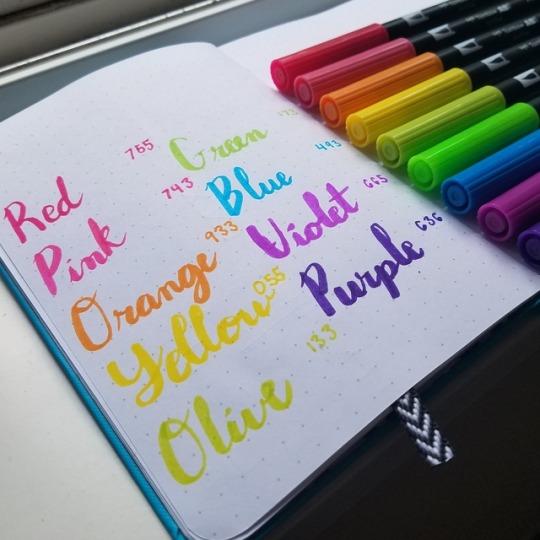 Red 755
Pink 743
Orange 933
Yellow 055
Olive 133
Green 173
Blue 493
Violet 665
Purple 636